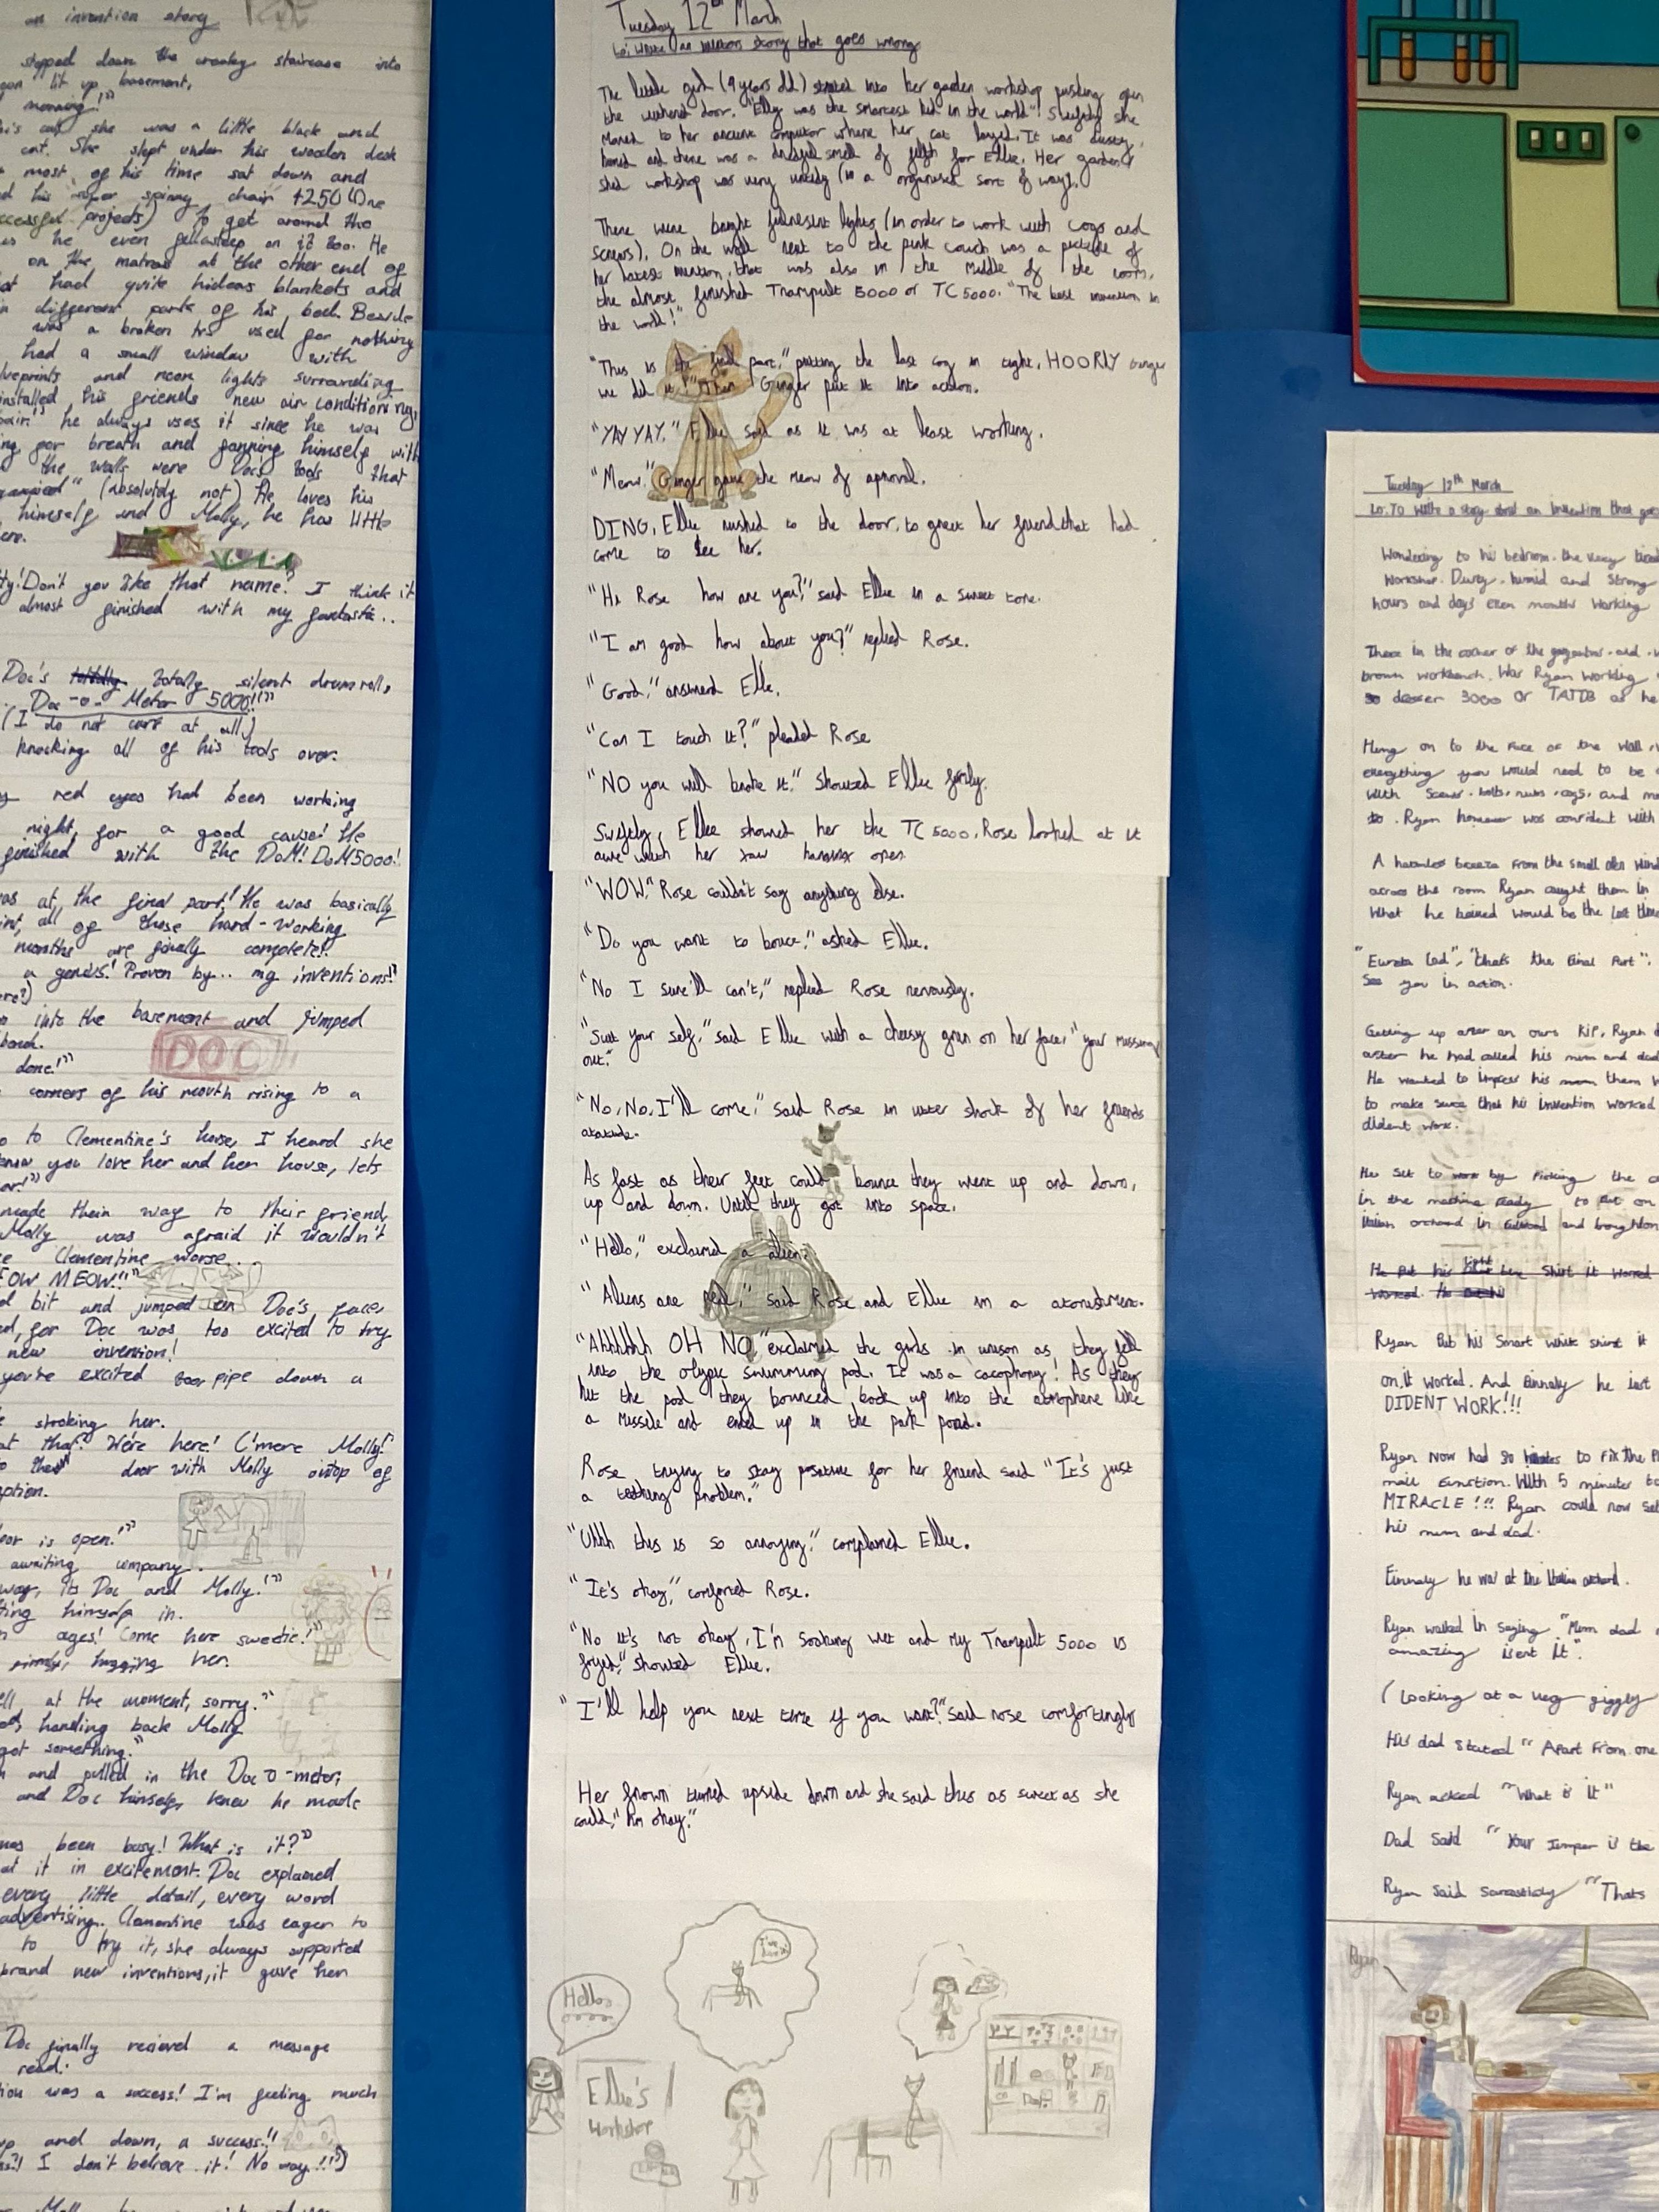 an invention story
stepped down the creaky staircase into
lit up basement,
morning!"
cat, she was a little black and
cat. She slept under his wooden desk
most of his time sat down and
his super spinny chair £250 (One
successful projects) to get around the
he even fellasleep on it too. He
on the matras at the other end of
had quite hideas blankets and
different parts of his bed. Beside
was a broken used for nothing
had a small window with
blueprints and neon lights surrounding
installed, his friends new air conditioning
he always uses it since he was
for breath and fanning himself with
the walls were Doc's tools that
(absolutely not) He loves his
himself and Molly, he has little
Don't you like that name? I think it
almost finished with my fantastic..
Doc's totally silent drumroll,
Doc-o-Meter 5000!"
(I do not care at all)
knocking all of his tools over.
red eyes had been working
night, for a good cause! He
finished with the DoM! DoM5000!
was at the final part! He was basically
all of those hard-working
months are finally complete!!
a genius! Proven by.. my inventions!"
into the basement and jumped
DOC
done!"
corners of his mouth rising to a
to Clementine's house, I heard she
know you love her and her house, lets
made their way to their friend,
Molly was afraid it wouldn't
Clementine worse..
MEOW!!"
bit and jumped on Doc's face,
for Doc was too excited to try
new invention!
you're excited pipe down a
stroking her.
that? We're here! C'mere Molly!"
door with Molly ontop of
door is open!"
awaiting company..
its Doc and Molly!"
himself in.
ages! Come here sweetie!"
hugging her.
at the moment, sorry."
handing back Molly
got something."
and pulled in the Doc-o-meter,
and Doc himself knew he made
been busy! What is it?"
at it in excitement. Doc explained
every little detail, every word
advertising. Clementine was eager to
to try it, she always supported
brand new inventions, it gave her
Doc finally recieved a message
read:
was a success! I'm feeling much
up and down, a success!!
I don't believe it! No way!!!")
Tuesday 12th March
Lo: Write an invention story that goes wrong
The little girl (9 years old) strolled into her garden workshop pushing open
the withered door. "Elly was the smartest kid in the world"! Sleepily she
moved to her ancient computor where her cat layed. It was dusty,
humid and there was a dredful smell of filth for Ellie. Her garden
shed workshop was very untidy (in a organised sort of way).
There were bright fulresent lights (in order to work with cogs and
screws). On the wall next to the pink couch was a picture of
her latest invention, that was also in the middle of the room,
the almost finished Trampult 5000 or TC5000. "The best invention in
the world!"
"This is the final part," putting the last cog in tight, HOORLY Ginger
we did it!" Then Ginger put it into action.
"YAY YAY." Ellie said as it was at least working.
"Meow." Ginger gave the meow of aproval.
DING, Ellie rushed to the door, to greet her friend that had
come to see her.
"Hi Rose how are you?" said Ellie in a sweet tone.
"I am good how about you?" replied Rose.
"Good," answered Ellie.
"Can I touch it?" pleaded Rose
"NO you will brake it." Shouted Ellie firmly.
Swiftly, Ellie showed her the TC5000. Rose looked at it
awe which her jaw hanging open.
"WOW." Rose couldn't say anything else.
"Do you want to bounce," asked Ellie.
"No I sure'll can't," replied Rose nervously.
"Suit your self," said Ellie with a cheesy grin on her face, "your missing
out."
"No, No, I'll come," said Rose in utter shock of her friends
atatude.
As fast as their feet could bounce they went up and down,
up and down. Until they got into space.
"Hello," exclaimed a alien.
"Aliens are real," said Rose and Ellie in a astonishment.
"Ahhhhhh OH NO" exclaimed the girls in unison as they fell
into the olypic swimming pool. It was a cacophony! As they
hit the pool they bounced back up into the atmophere like
a missile and ended up in the park pond.
Rose trying to stay positive for her friend said "It's just
a teething problem."
"Uhhh this is so annoying," complained Ellie.
"It's okay," comforted Rose.
"No it's not okay, I'm soaking wet and my Trampult 5000 is
fryed," shouted Ellie.
"I'll help you next time if you want?" said rose comfortingly
Her frown turned upside down and she said this as sweet as she
could, "Im okay."
Hello
Ellie's
Workshop
Tuesday 12th March
Lo: To write a story about an invention that goes
Wondering to his bedroom. the very tired
Workshop. Dusty, humid and Strong
hours and days even months working
There in the corner of the
brown workbench. Was Ryan working
3000 or TATDB as he
Hung on to the face of the wall
everything you would need to be
with Screws, bolts, nuts, cogs, and
Ryan however was confident with
A harmless breeze from the small open wind
across the room Ryan caught them in
What he gained would be the last
"Eureka lad", "thats the final part".
See you in action.
Getting up after an ours kip, Ryan
after he had called his mum and dad
He wanted to impress his them
to make sure that his invention worked
dident work.
He set to work by Picking the
in the machine ready to put on
Italian orchard in and
He put his light Shirt it worked
Ryan Put his Smart white shirt it
on, it worked. And finnaly he last
DIDENT WORK!!!
Ryan now had 30 minutes to fix the
mail function. With 5 minutes to
MIRACLE!!! Ryan could now set
his mum and dad.
Finnaly he was at the Italian orchard.
Ryan walked in saying "Mum dad
amazing isent it".
(Looking at a very giggly
His dad stated "Apart from one
Ryan asked "What is it"
Dad Said "Your Jumper is the
Ryan said sarcasticly "Thats
Ryan